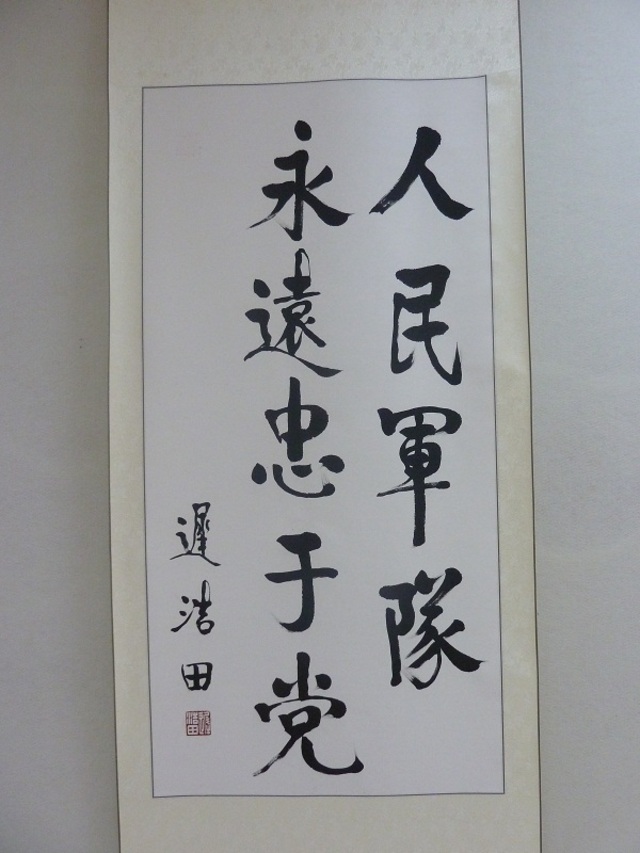 人民軍隊
永遠忠于党
遲浩田